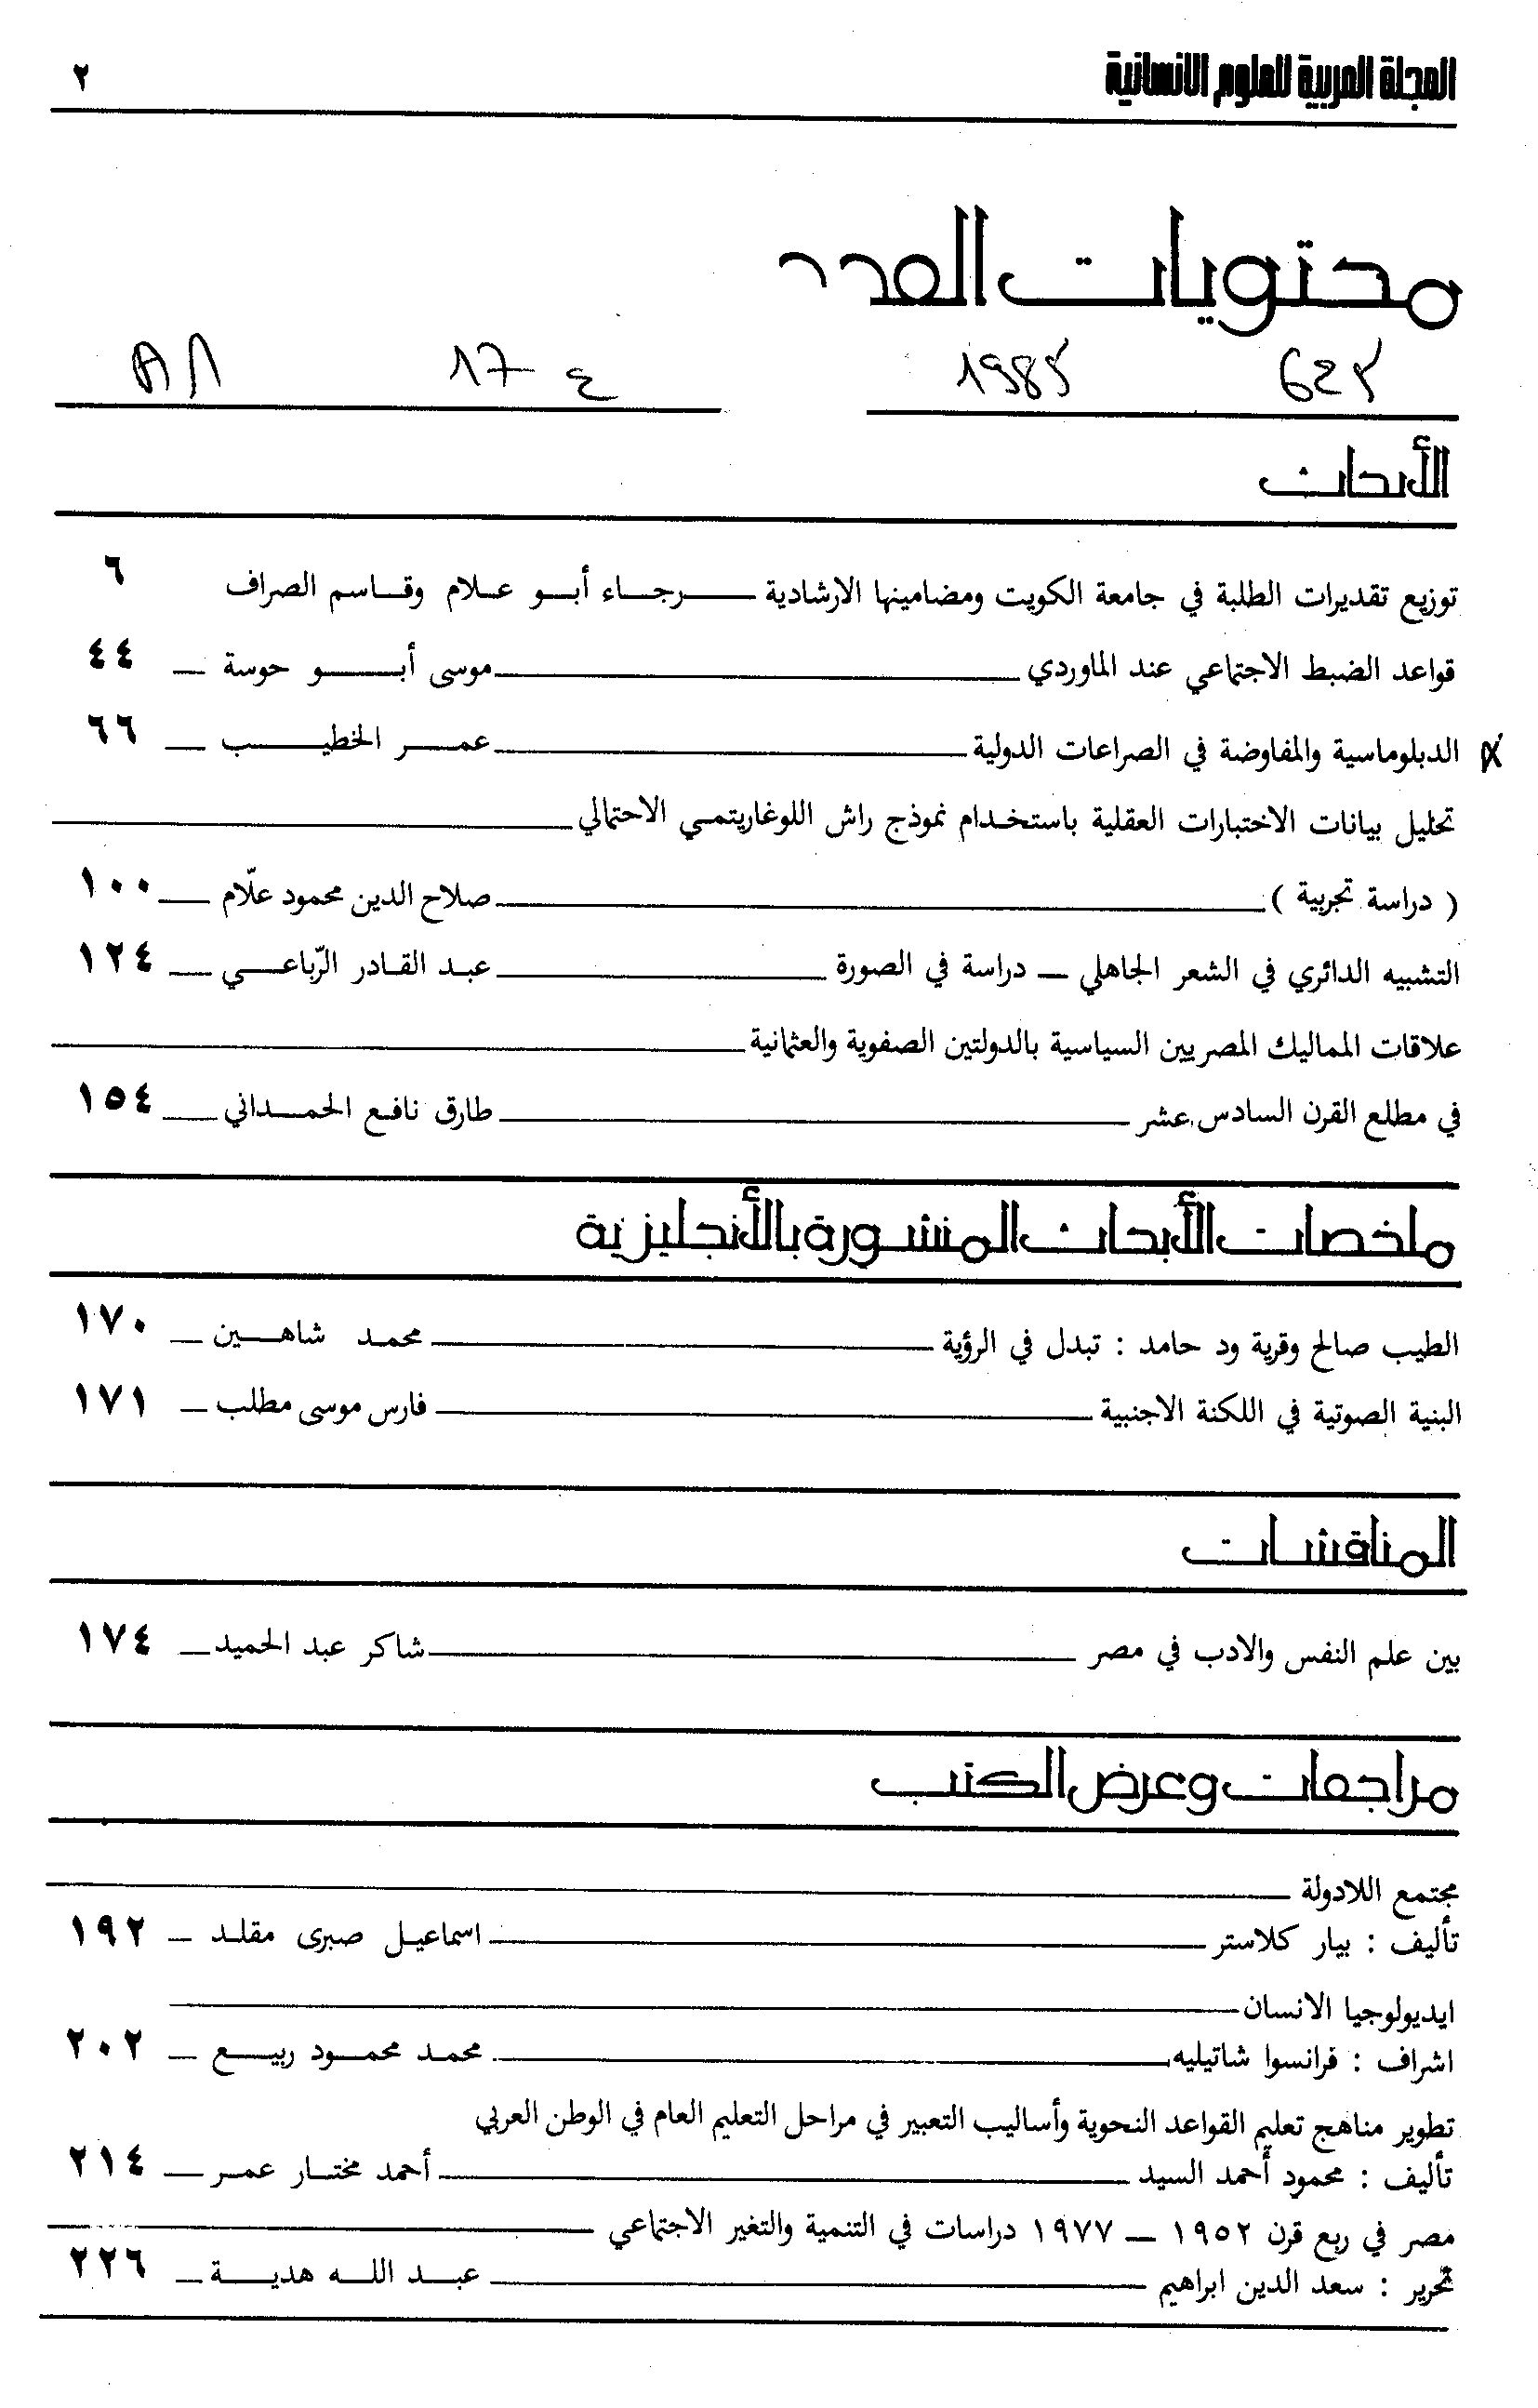 المجلة العربية للعلوم الانسانية ٢
محتويات العدد
1985 17 ع
الأبحاث
توزيع تقديرات الطلبة في جامعة الكويت ومضامينها الارشادية رجاء أبو علام وقاسم الصراف ٦
قواعد الضبط الاجتماعي عند الماوردي موسى أبو حوسة ٤٤
الدبلوماسية والمفاوضة في الصراعات الدولية عمر الخطيب ٦٦
تحليل بيانات الاختبارات العقلية باستخدام نموذج راش اللوغاريتمي الاحتمالي
( دراسة تجريبية ) صلاح الدين محمود علّام ١٠٠
التشبيه الدائري في الشعر الجاهلي — دراسة في الصورة عبد القادر الرّباعي ١٢٤
علاقات المماليك المصريين السياسية بالدولتين الصفوية والعثمانية
في مطلع القرن السادس عشر طارق نافع الحمداني ١٥٤
ملخصات الأبحاث المنشورة بالأنجليزية
الطيب صالح وقرية ود حامد : تبدل في الرؤية محمد شاهين ١٧٠
البنية الصوتية في اللكنة الاجنبية فارس موسى مطلب ١٧١
المناقشات
بين علم النفس والادب في مصر شاكر عبد الحميد ١٧٤
مراجعات وعرض الكتب
مجتمع اللادولة
تأليف : بيار كلاستر اسماعيل صبرى مقلد ١٩٢
ايديولوجيا الانسان
اشراف : فرانسوا شاتيليه محمد محمود ربيع ٢٠٢
تطوير مناهج تعليم القواعد النحوية وأساليب التعبير في مراحل التعليم العام في الوطن العربي
تأليف : محمود أحمد السيد أحمد مختار عمر ٢١٤
مصر في ربع قرن ١٩٥٢ — ١٩٧٧ دراسات في التنمية والتغير الاجتماعي
تحرير : سعد الدين ابراهيم عبد الله هدية ٢٢٦